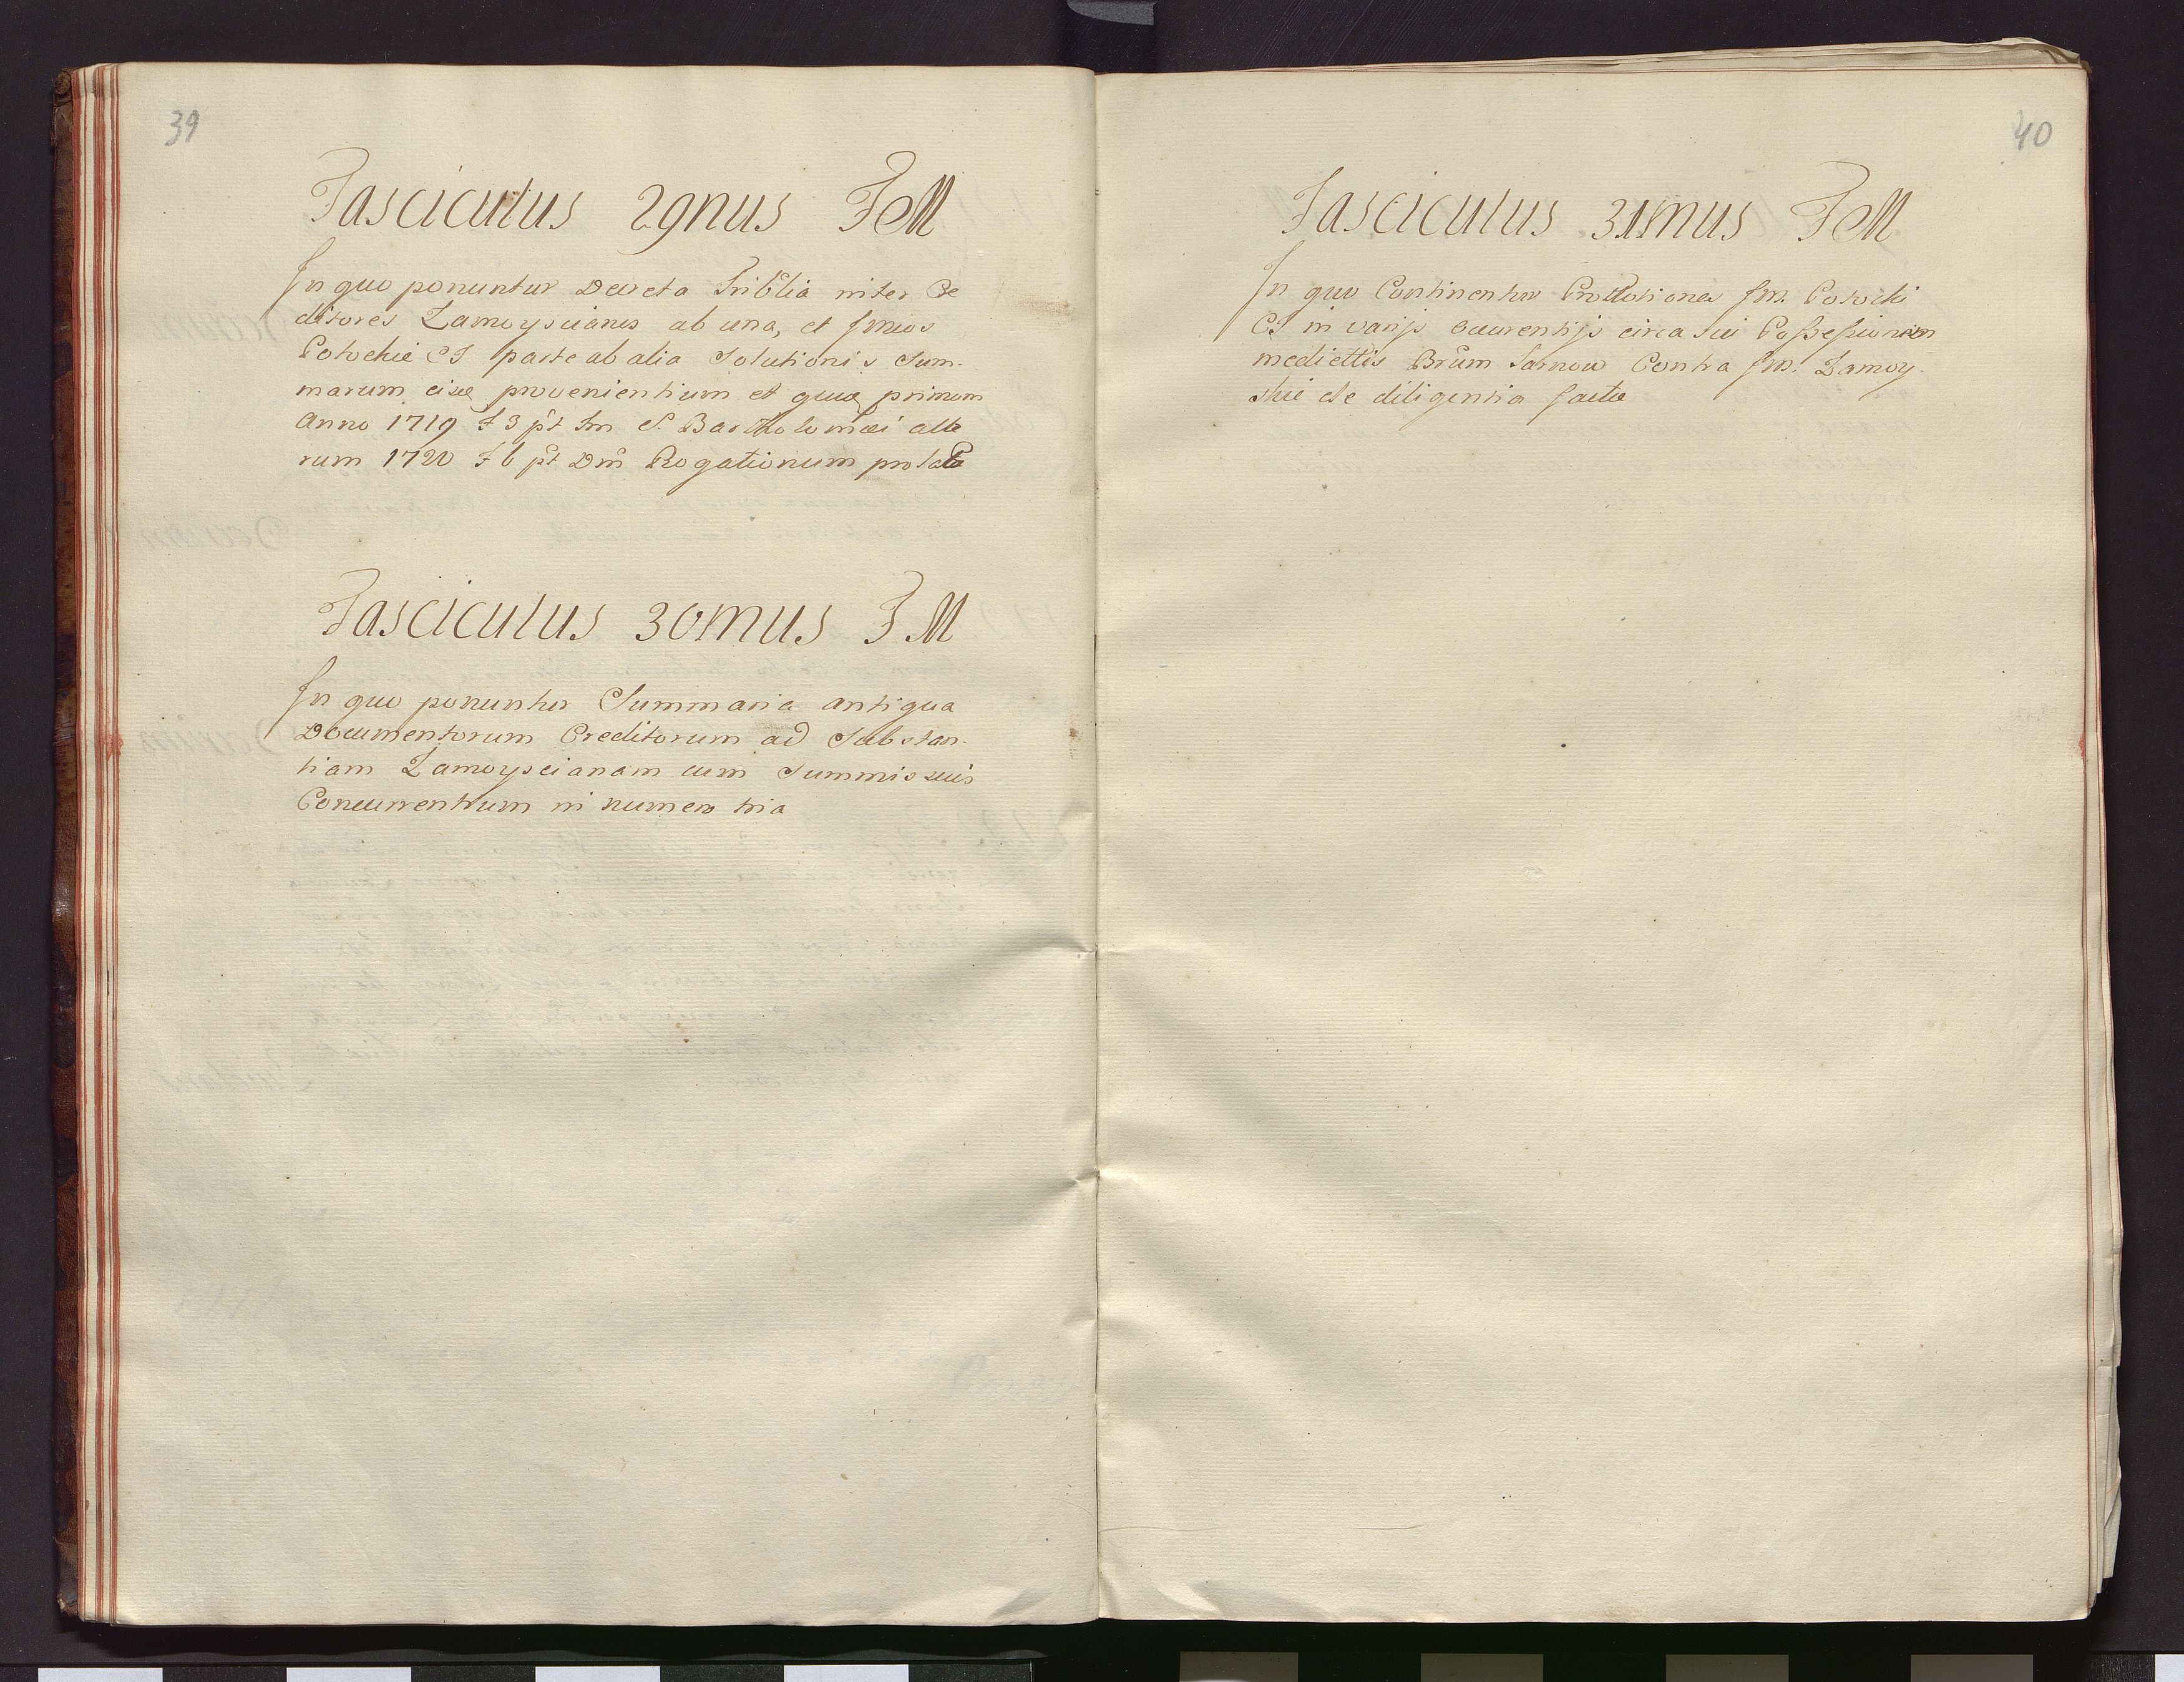 39
Fasciculus 29nus F M
In quo ponuntur Decreta Triblia inter Cre
ditores Zamoyscianos ab una, et
Potockie CT parte ab alia Solutionis Sum-
marum eisde provenientium et quae primum
Anno 1719 F 3 pt S. Bartholomaei alte
rum 1720 F 6 pt Dm Rogationum prolata
Fasciculus 30mus F M
In quo ponuntur Summaria antiqua
Documentorum Creditorum ad Substan-
tiam Zamoyscianam cum Summis suis
Concurrentium in numero tria
40
Fasciculus 31mus F M
In quo Continentur Protestiones Potocki
CT in varijs occurentijs circa sui Possessionem
mediettis Brum Tarnow Contra Zamoy-
skie de diligentia factae